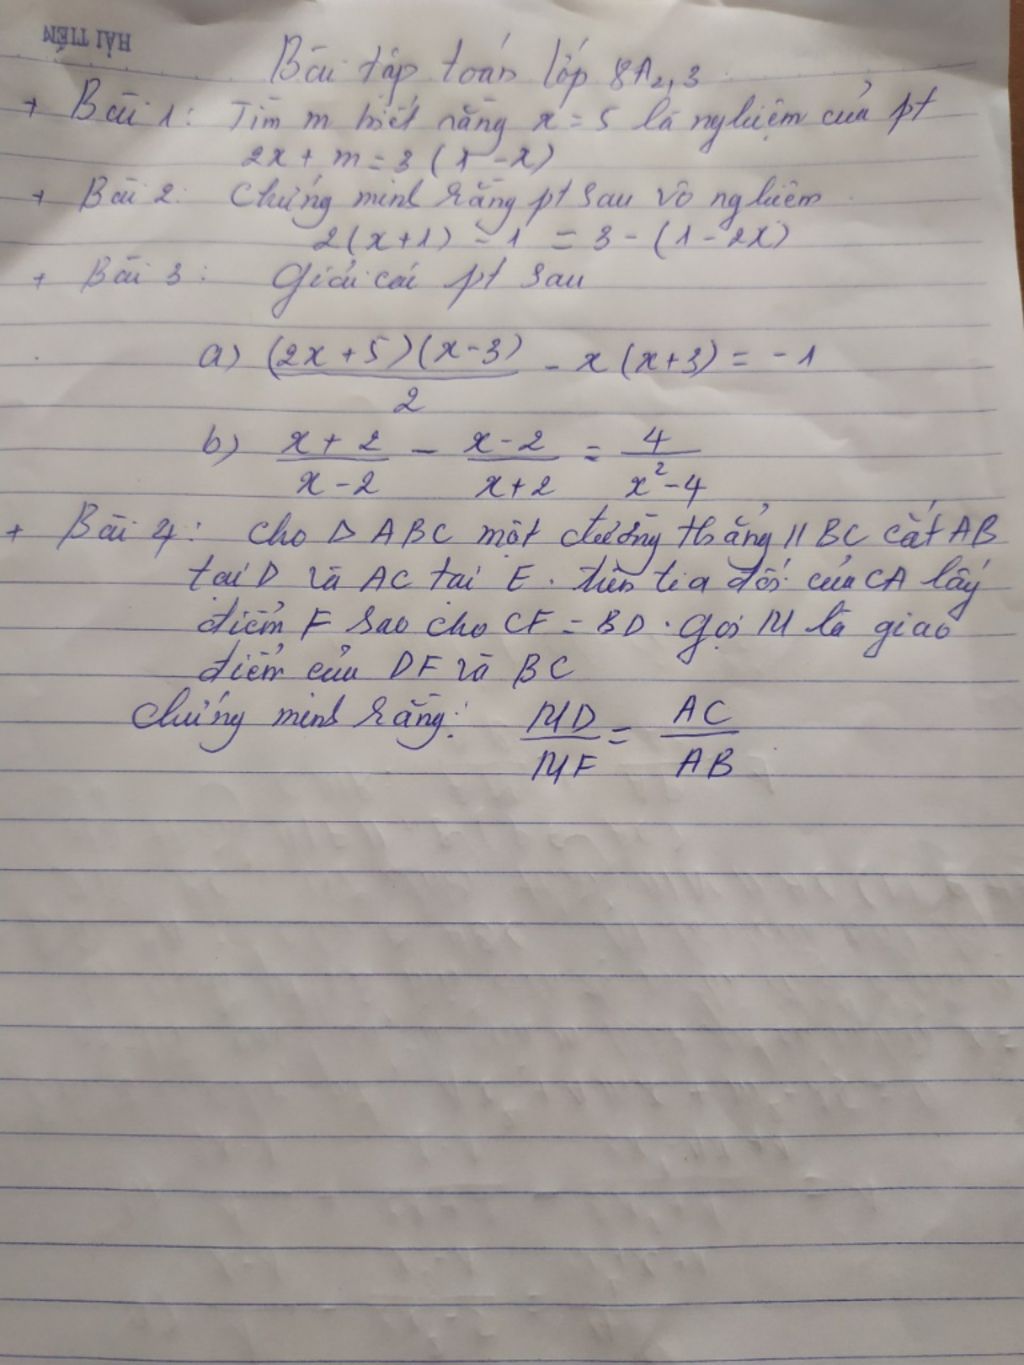 HẢI TIẾN
Bài tập toán lớp 8A2,3
+ Bài 1: Tìm m biết rằng x = 5 là nghiệm của pt
2x + m = 3 (1 - x)
+ Bài 2: Chứng minh rằng pt sau vô nghiệm
2(x+1) - 1 = 3 - (1 - 2x)
+ Bài 3: Giải các pt sau
a) (2x + 5)(x - 3) / 2 - x (x + 3) = - 1
b) x + 2 / x - 2 - x - 2 / x + 2 = 4 / x² - 4
+ Bài 4: Cho Δ ABC một đường thẳng // BC cắt AB
tại D và AC tại E. trên tia đối của CA lấy
điểm F sao cho CF = BD. Gọi M là giao
điểm của DF và BC
Chứng minh rằng: MD / MF = AC / AB